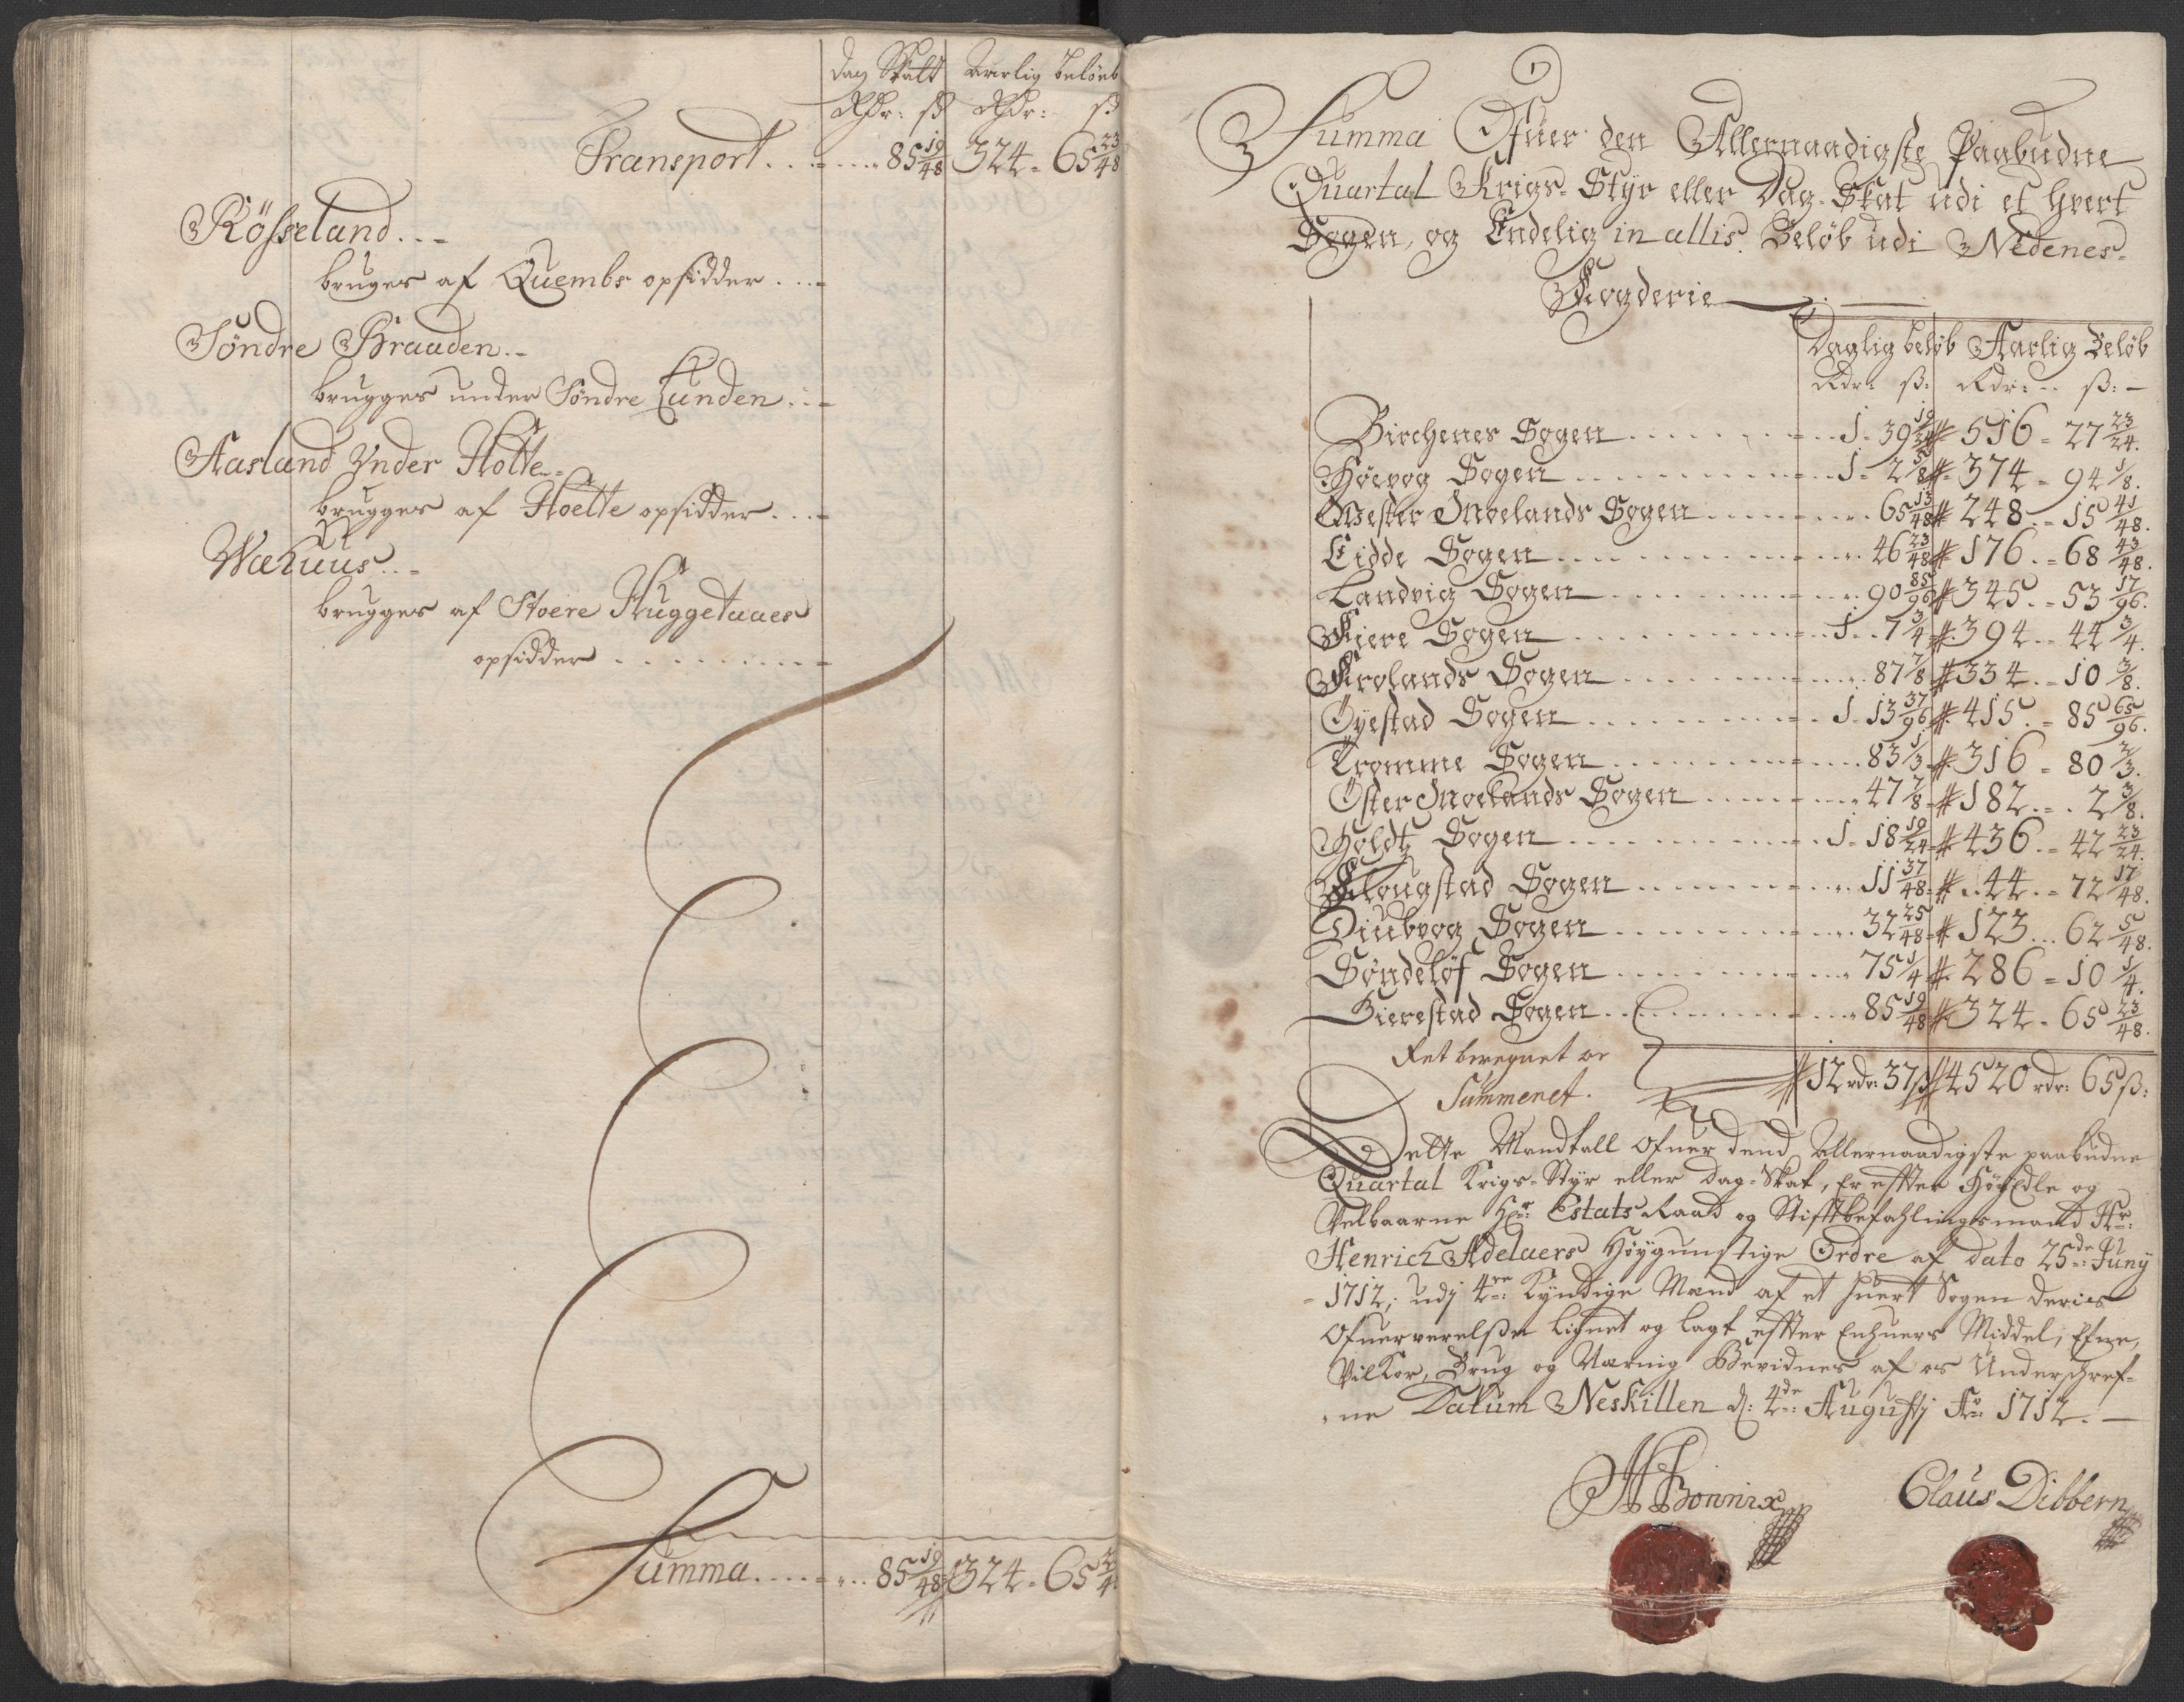 Dag Skatt Aarlig beløb
Rdr: ß Rdr: ß
Transport . . . 85 19/48 324 - 65 23/48
Rösseland . .
bruges af Quembs opsidder . . .
Søndre Braaden . .
brugges under Søndre Lunden . .
Aasland Under Holte . .
brugges af Hoelte opsidder . . .
Wæhuus . .
brugges af Stoere Huggetaaes
opsidder . . . . . . .
Summa . . . . 85 19/48 324 - 65
Summa Ofuer den Allernaadigste Paabudne
Quartal Krigs-Styr eller Dag-Skat udi et hvert
Sogen, og Endelig in allis Beløb udi Nedenes-
Fogderie
Daglig beløb Aarlig Beløb
Rdr: ß: Rdr: ß:
Birchenes Sogen . . . 1 - 39 19/24 # 516 - 27 23/24.
Høevog Sogen . . . 1 - 2 5/8 # 374 - 94 1/8.
Wester Moelands Sogen . . . 65 13/48 # 248 - 15 41/48.
Eidde Sogen . . . 46 23/48 # 176 - 68 43/48.
Landvig Sogen . . . 90 85/96 # 345 - 53 17/96.
Fiere Sogen . . . 1 - 7 3/4 # 394 - 44 3/4.
Frolands Sogen . . . 87 7/8 # 334 - 10 3/8.
Øyestad Sogen . . . 1 - 13 37/96 # 415 - 85 65/96.
Tromme Sogen . . . 83 1/3 # 316 - 80 2/3.
Øster Moelands Sogen . . . 47 7/8 # 182 - 2 3/8.
Holdtz Sogen . . . 1 - 18 19/24 # 436 - 42 23/24.
Flougstad Sogen . . . 11 37/48 # 44 - 72 17/48.
Diubvog Sogen . . . 32 25/48 # 123 - 62 5/48.
Søndeløf Sogen . . . 75 1/4 # 286 - 10 1/4.
Gierestad Sogen . . . 85 19/48 # 324 - 65 23/48.
Ret beregnet oc
Summeret.
# 12 rdr: 37 ß # 4520 rdr: 65 ß:
Dette Mandtall Ofuer dend Allernaadigste paabudne
Quartal Krigs-Styr eller Dag-Skat, Er effter HøyEdle og
Velbaarne Hr: Estats Raad og Stifftbefahlingsmand Hr:
Henrich Adelaers Høygunstige Ordre af dato 25de Juny
1712, udj 4re Kyndige Mænd af et huert Sogen deris
Ofuerverelße lignet og lagt effter Enhuers Middel, Efne,
Vilkor, Brug og Næring Bevidnes af os Underschref-
ne Datum Neskillen d: 4de Augustj Ao 1712. -
Claus Dibbern